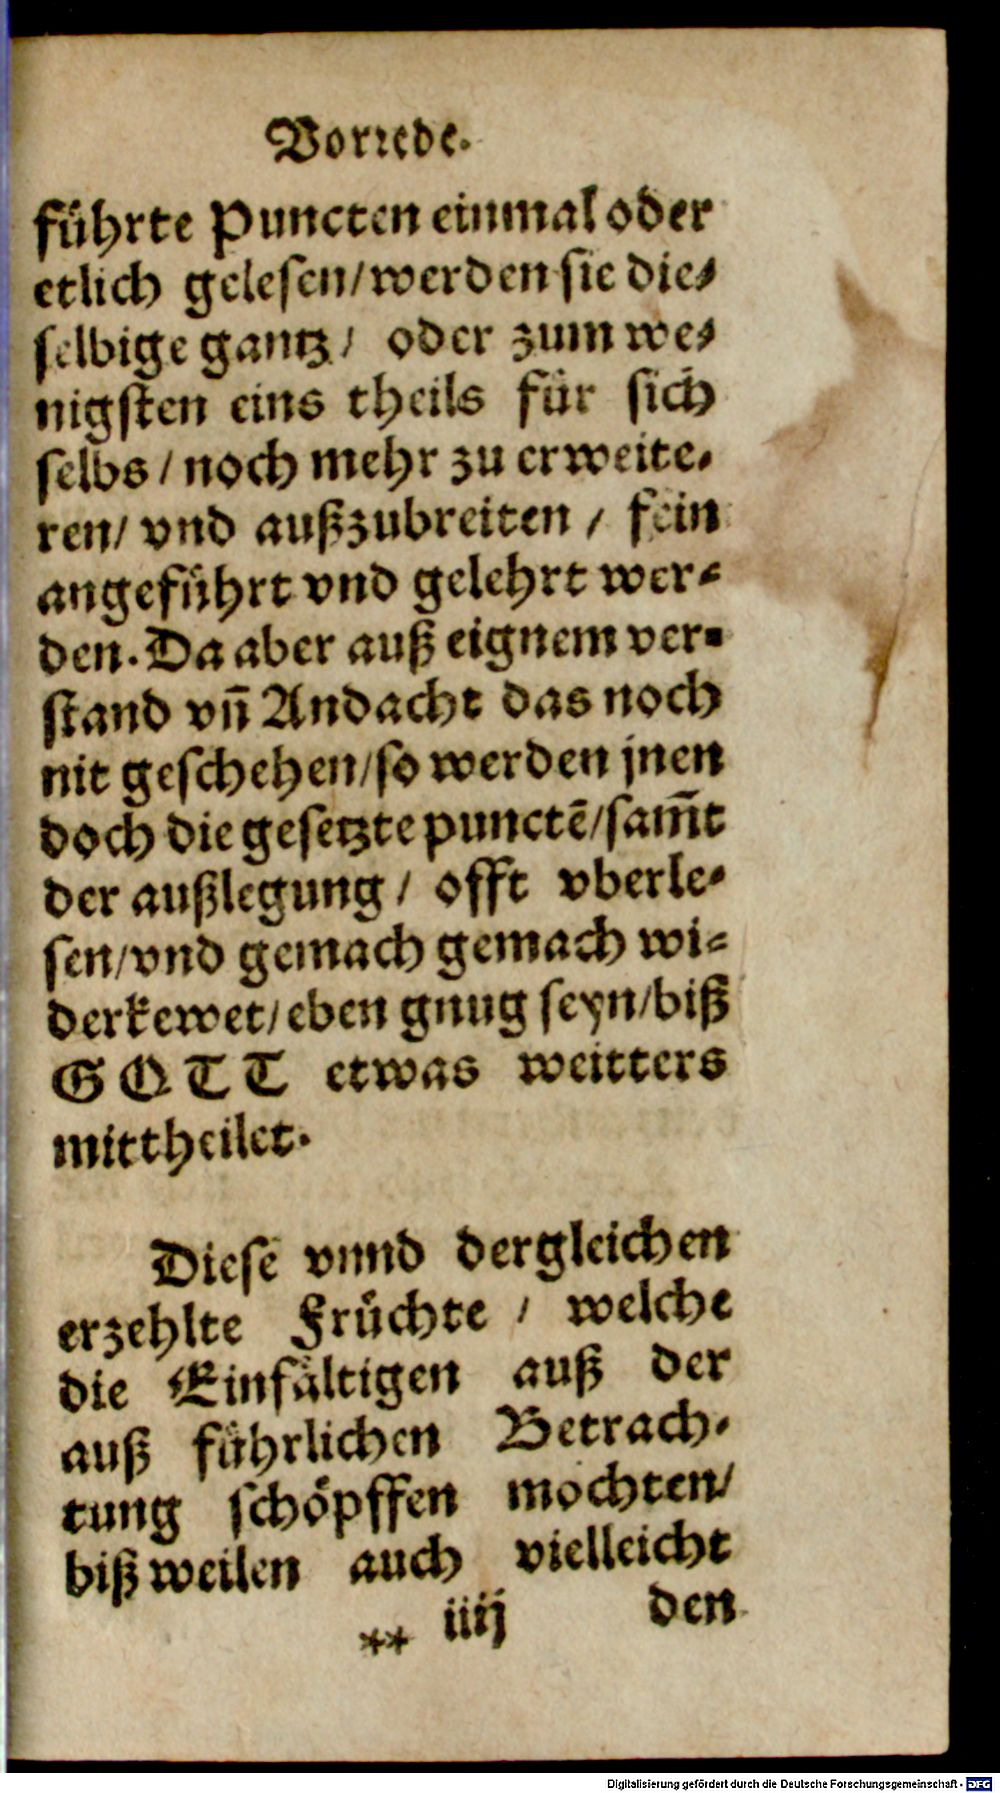 Vorrede.
führte Puncten einmal oder
etlich gelesen/werden sie die-
selbige gantz/ oder zum we-
nigsten eins theils für sich
selbs/noch mehr zu erweite-
ren/ vnd außzubreiten / fein
angeführt vnd gelehrt wer-
den. Da aber auß eignem ver-
stand vñ Andacht das noch
nit geschehen/so werden jnen
doch die gesetzte punctē/sam̄t
der außlegung/ offt vberle-
sen/vnd gemach gemach wi-
derkewet/eben gnug seyn/biß
GOTT etwas weitters
mittheilet.
Diese vnnd dergleichen
erzehlte Früchte / welche
die Einfältigen auß der
auß führlichen Betrach-
tung schöpffen mochten/
biß weilen auch vielleicht
** iiij den
Digitalisierung gefördert durch die Deutsche Forschungsgemeinschaft - DFG